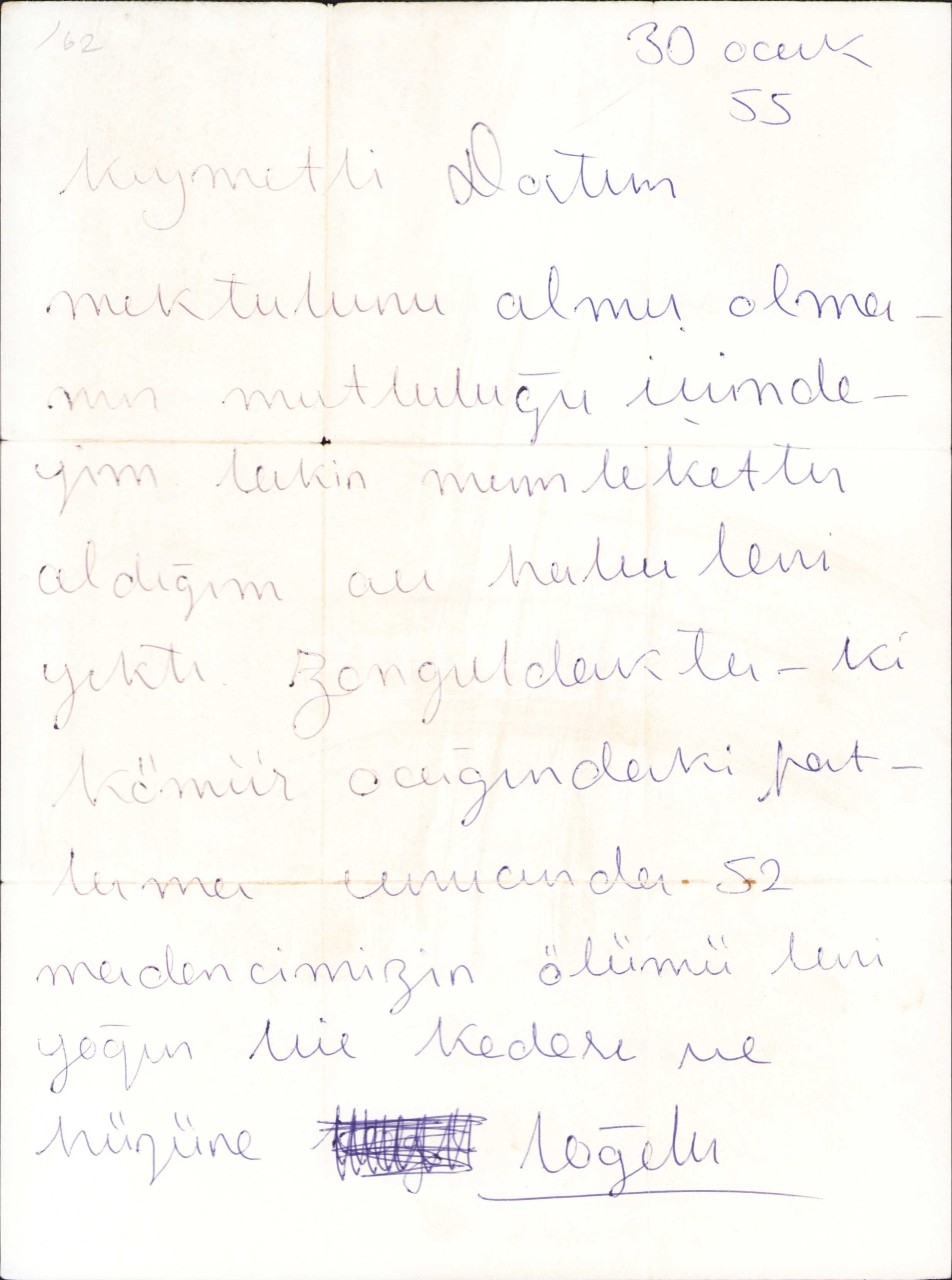 /62
30 ocak
55
Kıymetli Dostum
mektubunu almış olma-
nın mutluluğu içinde-
yim lakin memlekette
aldığım acı haber beni
yıktı. Zonguldakta-ki
kömür ocağındaki pat-
lama sonucunda 52
madencimizin ölümü beni
yoğun bir kedere ve
hüzüne boğdu